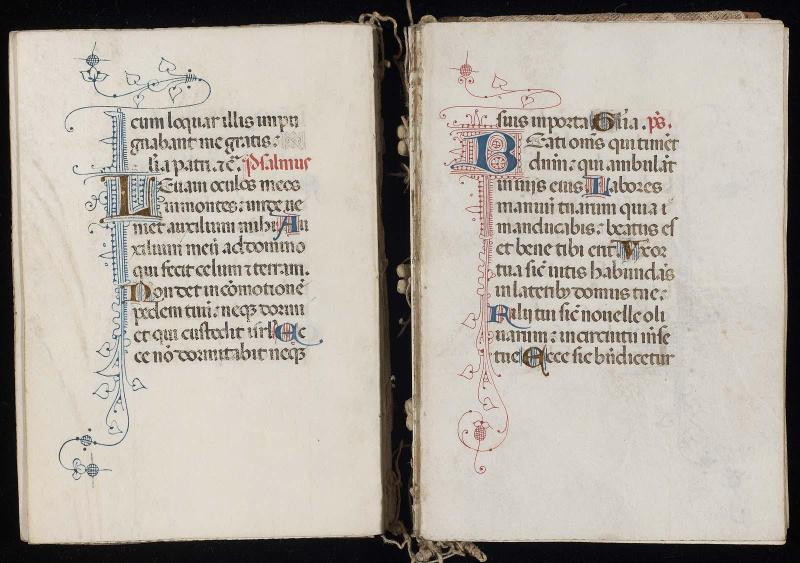 cum loquar illis impu
gnabant me gratis:
Gl'ia patri. ⁊c̄. Psalmus
LEuaui oculos meos
in montes: unde ue
niet auxilium mihi Au
xilium meū a domino
qui fecit celum ⁊ terram.
Non det in cōmotionē
pedem tuū: neq₃ dormi
et qui custodit isrl̄ Ec
ce nō dormitabit neq₃
suis in porta Gl'ia. ps̄.
BEati om̄s qui timēt
dnm̄: qui ambulāt
in uijs eius Labores
manuū tuarum quia
manducabis: beatus es
et bene tibi erit Vxor
tua sic̄ uitis habundās
in laterib₃ domus tue:
Filij tui sic̄ nouelle oli
uarum: in circuitu mēse
tue Ecce sic bn̄dicetur